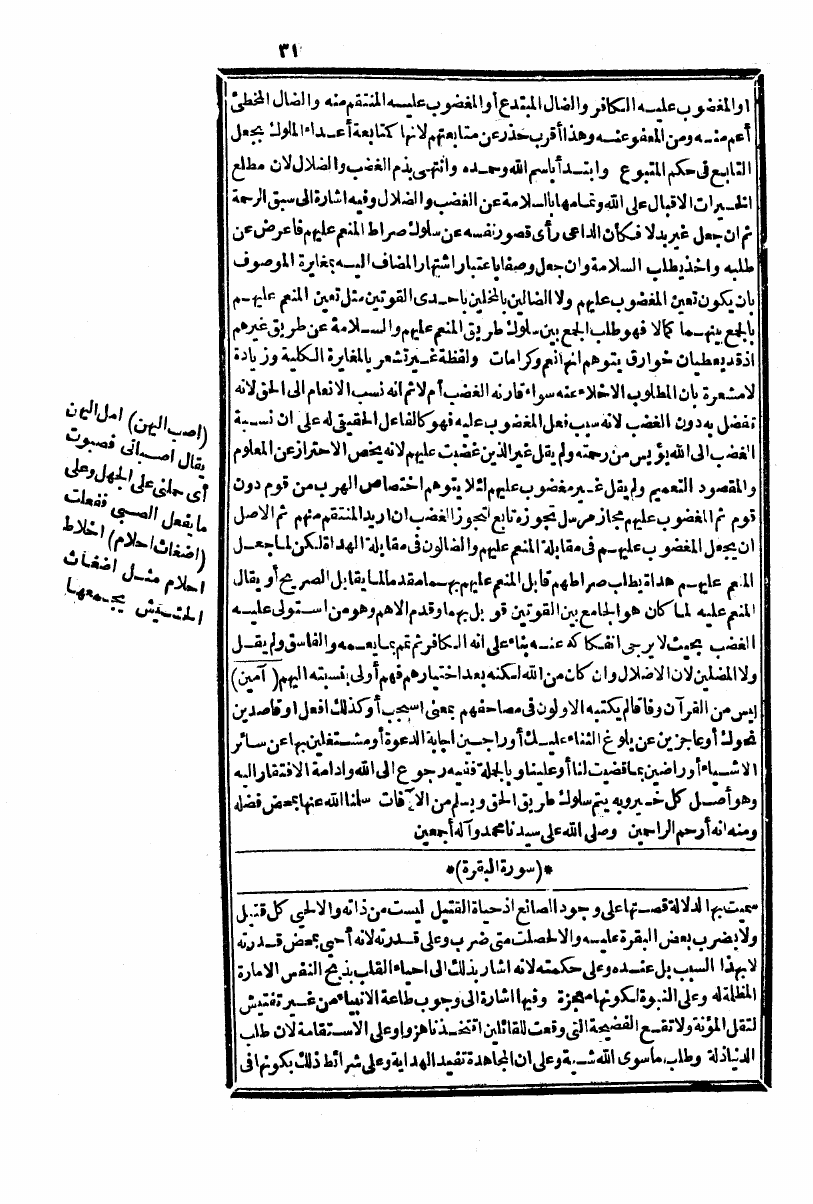 ٣١
او المغضوب عليه الكافر والضال المبتدع أو المغضوب عليه المنتقم منه والضال المخطئ
أعم منه ومن المعفو عنه وهذا أقرب حذر عن متابعتهم لانها كتابعة أعداء الملوك يجعل
التابع فى حكم المتبوع وابتدأ باسم الله وحمده وانتهى بذم الغضب والضلال لان مطلع
الخيرات الاقبال على الله وتمامها بالسلامة عن الغضب والضلال وفيه اشارة الى سبق الرحمة
ثم ان جعل غير بدلا فكأن الداعى رأى قصور نفسه عن سلوك صراط المنعم عليهم فاعرض عن
طلبه واخذ يطلب السلامة وان جعل وصفا باعتبار اشتهار المضاف اليه بمغايرة الموصوف
بان يكون تعين المغضوب عليهم ولا الضالين بالمخلين باحدى القوتين مثل تعين المنعم عليهم
بالجمع بينهما كمالا فهو طلب الجمع بين سلوك طريق المنعم عليهم والسلامة عن طريق غيرهم
اذ قد يعطيان خوارق يتوهم انها نعم وكرامات ولفظة غير تشعر بالمغايرة الكلية وزيادة
لا مشعرة بان المطلوب الاخلاء عنه سواء قارنه الغضب أم لا ثم انه نسب الانعام الى الحق لانه
تفضل به دون الغضب لانه سبب فعل المغضوب عليه فهو كالفاعل الحقيقى له على ان نسبة
الغضب الى الله يؤيس من رحمته ولم يقل غير الذين غضبت عليهم لانه يخص الاحتراز عن المعلوم
والمقصود التعميم ولم يقل غير مغضوب عليهم لئلا يتوهم اختصاص الهرب من قوم دون
قوم ثم المغضوب عليهم مجاز مرسل تجوزه تابع لتجوز الغضب ان اريد المنتقم منهم ثم الاصل
ان يجعل المغضوب عليهم فى مقابلة المنعم عليهم والضالون فى مقابلة الهداة لكن لما جعل
المنعم عليهم هداة يطلب صراطهم قابل المنعم عليهم بهما مقدما لما يقابل الصريح أو يقال
المنعم عليه لما كان هو الجامع بين القوتين قوبل بهما وقدم الاهم وهو من استولى عليه
الغضب بحيث لا يرجى انفكاكه عنه بناء على انه الكافر ثم تمم بما يعمه والفاسق ولم يقل
ولا المضلين لان الاضلال وان كان من الله لكنه بعد اختيارهم فهم أولى بنسبته اليهم (آمين)
ليس من القرآن وفاقا لم يكتبه الاولون فى مصاحفهم بمعنى استجب أو كذلك افعل او قاصدين
نحوك أو عاجزين عن بلوغ الثناء عليك أو راجين اجابة الدعوة أو مشتغلين بها عن سائر
الاشياء أو راضين بما قضيت لنا أو علينا وبالجملة ففيه رجوع الى الله وادامة الافتقار اليه
وهو أصل كل خير وبه يتم سلوك طريق الحق ويسلم من الآفات سلمنا الله عنها بمحض فضله
ومنه انه أرحم الراحمين وصلى الله على سيدنا محمد وآله أجمعين
*(سورة البقرة)*
سميت بها لدلالة قصتها على وجود الصانع اذ حياة القتيل ليست من ذاته والا لحى كل قتيل
ولا بضرب بعض البقرة عليه والا لحصلت متى ضرب وعلى قدرته لانه أحيى بمحض قدرته
لا بهذا السبب بل عنده وعلى حكمته لانه اشار بذلك الى احياء القلب بذبح النفس الامارة
المظلة له وعلى النبوة لكونها معجزة وفيها اشارة الى وجوب طاعة الانبياء من غير تفتيش
لتقل المؤنة ولا تقع الفضيحة التى وقعت للقائلين اتتخذنا هزوا وعلى الاستقامة لان طلب
الدنيا ذلة وطلب ما سوى الله شبة وعلى ان المجاهدة تفيد الهداية وعلى شرائط ذلك بكونها فى
(اصب اليهن) امل اليهن
يقال اصبانى فصبوت
أى حملنى على الجهل وعلى
ما يفعل الصبى ففعلت
(اضغاث احلام) اخلاط
احلام مثل اضغاث
الحشيش يجمعها